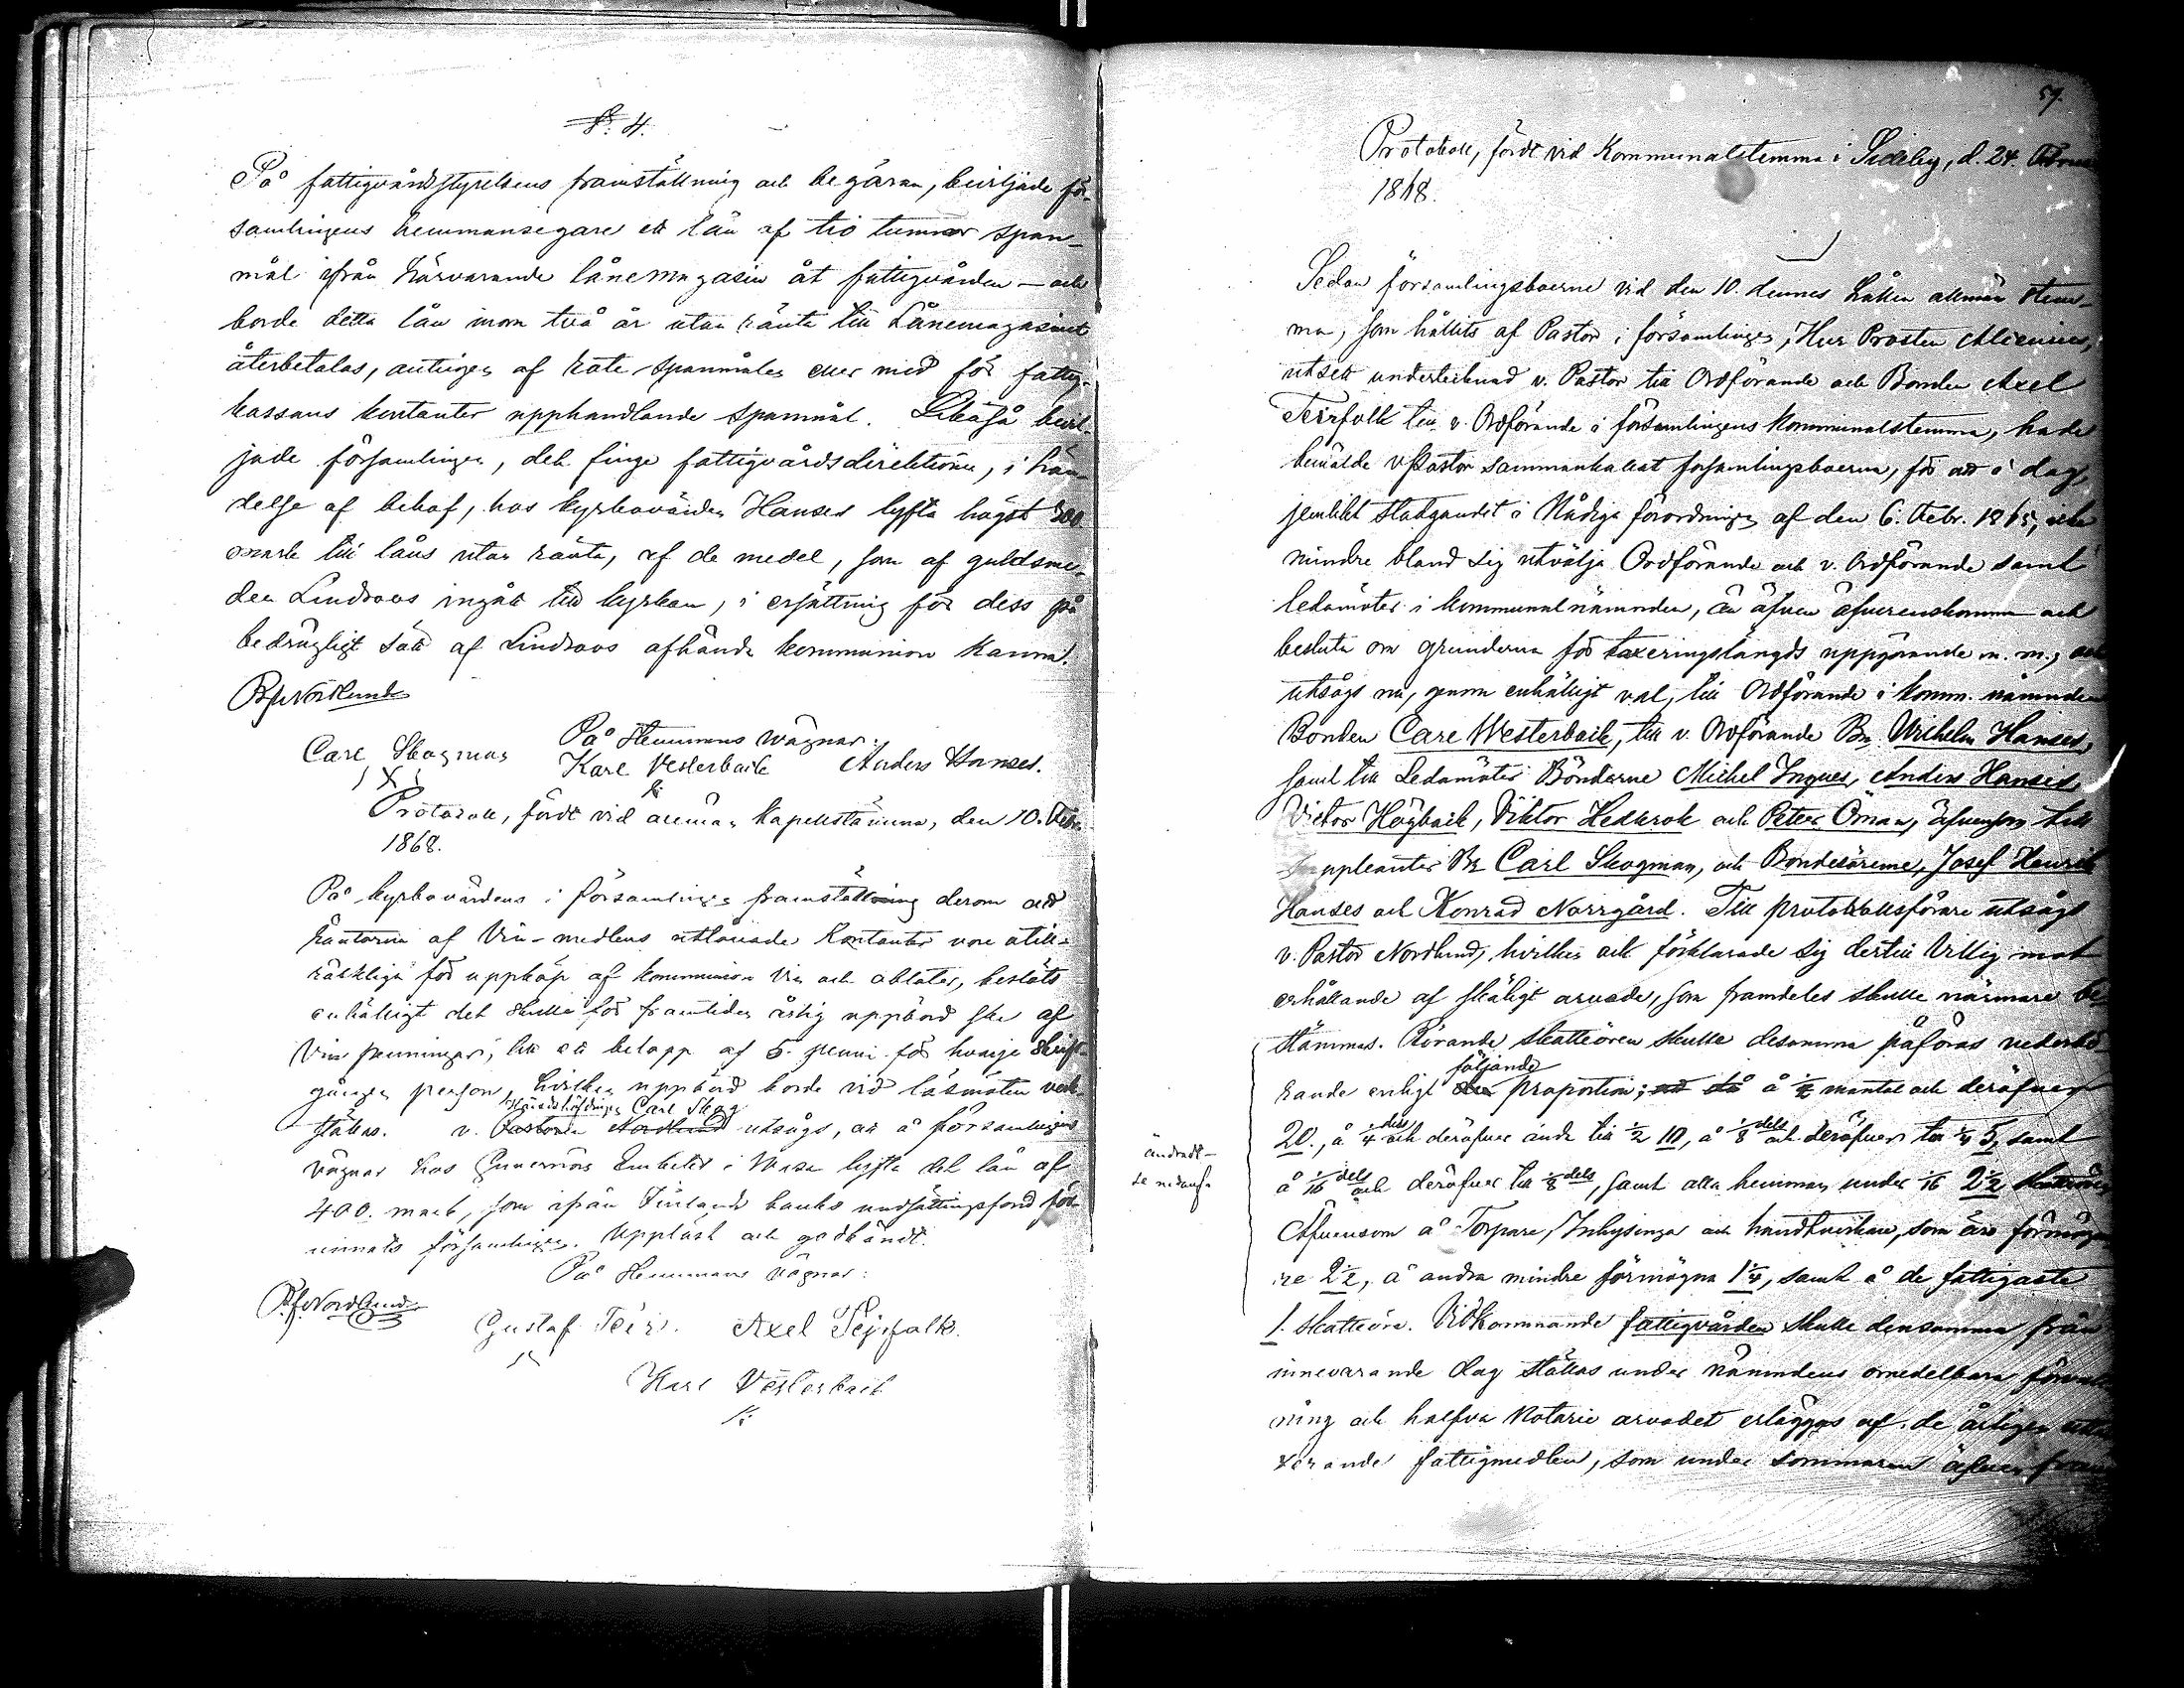 §. 4.
På fattigvårdsstyrelsens framställning och begäran, beviljade för-
samlingens hemmansegare ett lån af tio tunnor span-
mål ifrån härvarande lånemagasin åt fattigvården – och
borde detta lån inom två år utan ränta till Lånemagasinet
återbetalas, antingen af rote-spanmålen eller med för fattig-
kassans kontanter upphandlande spanmål. Likaså bevil-
jade församlingen, det finge fattigvårdsdirektionen, i hän-
delse af behof, hos kyrkovärden Hanses lyfta högst 300
mark till låns utan ränta, af de medel, som af guldsme-
den Lindroos ingått till kyrkan, i ersättning för dess på
bedrägligt sätt af Lindroos afhända kommunion kanna.
Nordlund
På Stemmans vägnar:
Carl Skogman Karl Vesterback Anders Hanses.
Protokoll, fördt vid allmän Kapellstämma, den 10. Febr.
1868.
På kyrkovärdens i församlingen framställning derom att
räntorna af Vin-medlens utlånade kontanter vore otill-
räckliga för uppköp af kommunion Vin och oblater, beslöts
enhälligt det skulle för framtiden årlig uppbörd ske af
Vin penningar, till ett belopp af 5. penni för hvarje skrift-
gången person, hvilken uppbörd borde vid läsmöten verk-
ställas. v. Pastorn Nordlund Häradshöfdingen Carl Skog utsågs, att å församlingens
vägnar hos Guvernörs Embetet i Wasa lyfta det lån af
400. mark, som ifrån Finlands banks undsättningsfond för-
unnats församlingen. Uppläst och godkändt.
På Stemmans vägnar:
Nordlund
Gustaf Teir. Axel Tejrfolk.
Karl Vesterback
57.
Protokoll, fördt vid Kommunalstemma i Sideby, d. 24. Febru
1868.
Sedan församlingsboerne vid den 10. dennes hållen allmän stem-
ma, som hållits af Pastor i församlingen, Herr Prosten Alcenius,
utsett undertecknad v. Pastor till Ordförande och Bonden Axel
Teirfolk till v. Ordförande i församlingens Kommunalstemma, hade
bemälde v Pastor sammankallat församlingsboerna, för att i dag,
jemlikt stadgandet i Nådiga förordningen af den 6. Febr. 1865, icke
mindre bland sig utvälja Ordförande och v. Ordförande samt
ledamöter i kommunalnämnden, än äfven öfverenskomma och
besluta om grunderna för taxeringslängds uppgörande m. m.,
utsågs nu, genom enhälligt val, till Ordförande i komm. nämnden
Bonden Carl Westerback, till v. Ordförande Bn. Wilhelm Hanses,
samt till Ledamöter Bönderne Michel Ingves, Anders Hanses
Victor Högback, Viktor Hedkrok och Peter Öman, äfvensom till
Suppleanter Bn Carl Skogman, och Bondesönerne, Josef Henrik
Hanses och Konrad Norrgård. Till protokollsförare utsågs
v. Pastor Nordlund, hvilken ock förklarade sig dertill villig mot
erhållande af skäligt arvode, som framdeles skulle närmare be-
stämmas. Rörande skatteören skulle desamma påföras vederbö-
rande enligt följande proportion; å ½ mantal och deröfver
20., å ¼ dels och deröfver ända till ½ 10, å ⅛ dels och deröfver till ¼ 5, samt
å 1/16 dels och deröfver till ⅛ dels, samt alla hemman under 1/16 2½ skatteören
Äfvensom å Torpare, Inhysingar och handtverkare, som äro förmög
re 2½, å andra mindre förmögna 1¼, samt å de fattigaste
1. skatteöre. Vidkommande fattigvården skulle densamma från
innevarande dag ställas under nämndens omedelbara
ning och halfva Notarie arvodet erlägges af de årligen
rande fattigmedlen, som under sommaren äfven
ändradt –
se nedanf.